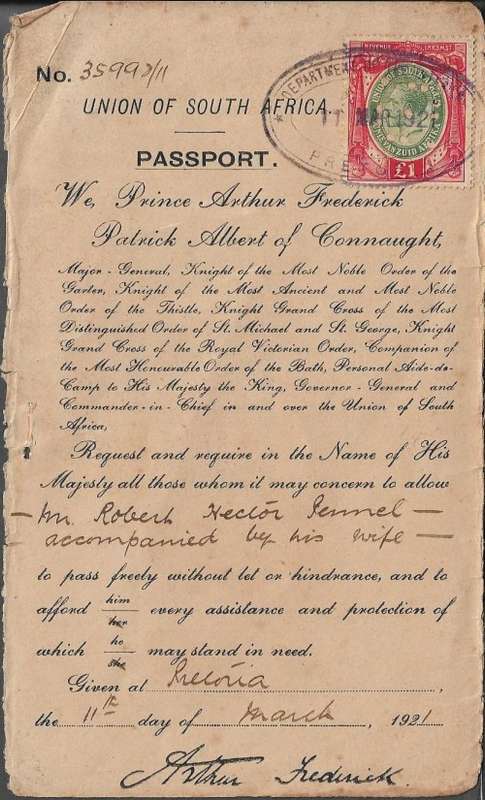 No. 35998/11
UNION OF SOUTH AFRICA.
DEPARTMENT
11 MAR 1921
UNION OF SOUTH AFRICA
£1
PASSPORT.
We, Prince Arthur Frederick
Patrick Albert of Connaught,
Major-General, Knight of the Most Noble Order of the
Garter, Knight of the Most Ancient and Most Noble
Order of the Thistle, Knight Grand Cross of the Most
Distinguished Order of St. Michael and St. George, Knight
Grand Cross of the Royal Victorian Order, Companion of
the Most Honourable Order of the Bath, Personal Aide-de-
Camp to His Majesty the King, Governor-General and
Commander-in-Chief in and over the Union of South
Africa,
Request and require in the Name of His
Majesty all those whom it may concern to allow
— Mr. Robert Hector Pennel —
— accompanied by his wife —
to pass freely without let or hindrance, and to
afford him/her every assistance and protection of
which he/she may stand in need.
Given at Pretoria,
the 11th day of March, 1921
Arthur Frederick.